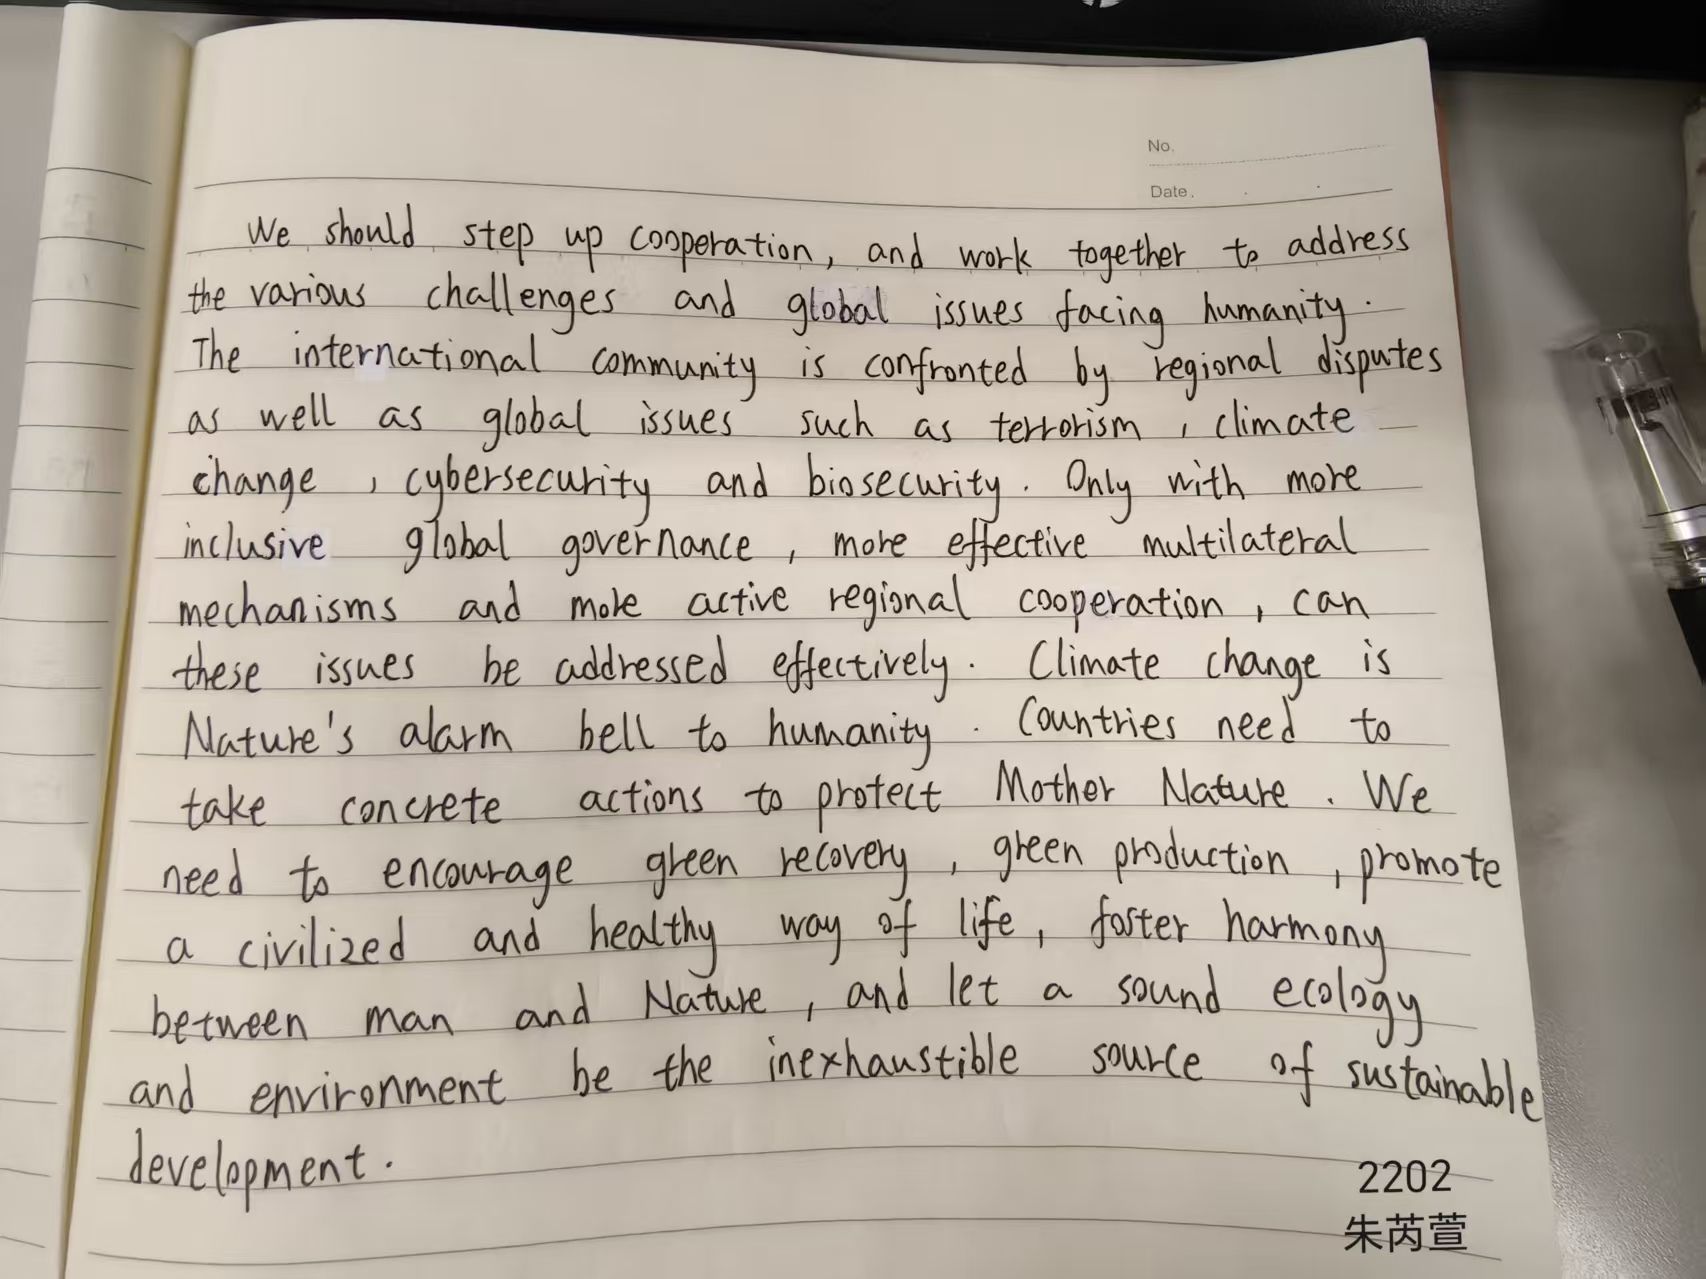 No.
Date.
We should step up cooperation, and work together to address
the various challenges and global issues facing humanity.
The international community is confronted by regional disputes
as well as global issues such as terrorism, climate
change, cybersecurity and biosecurity. Only with more
inclusive global governance, more effective multilateral
mechanisms and more active regional cooperation, can
these issues be addressed effectively. Climate change is
Nature's alarm bell to humanity. Countries need to
take concrete actions to protect Mother Nature. We
need to encourage green recovery, green production, promote
a civilized and healthy way of life, foster harmony
between man and Nature, and let a sound ecology
and environment be the inexhaustible source of sustainable
development.
2202
朱芮萱